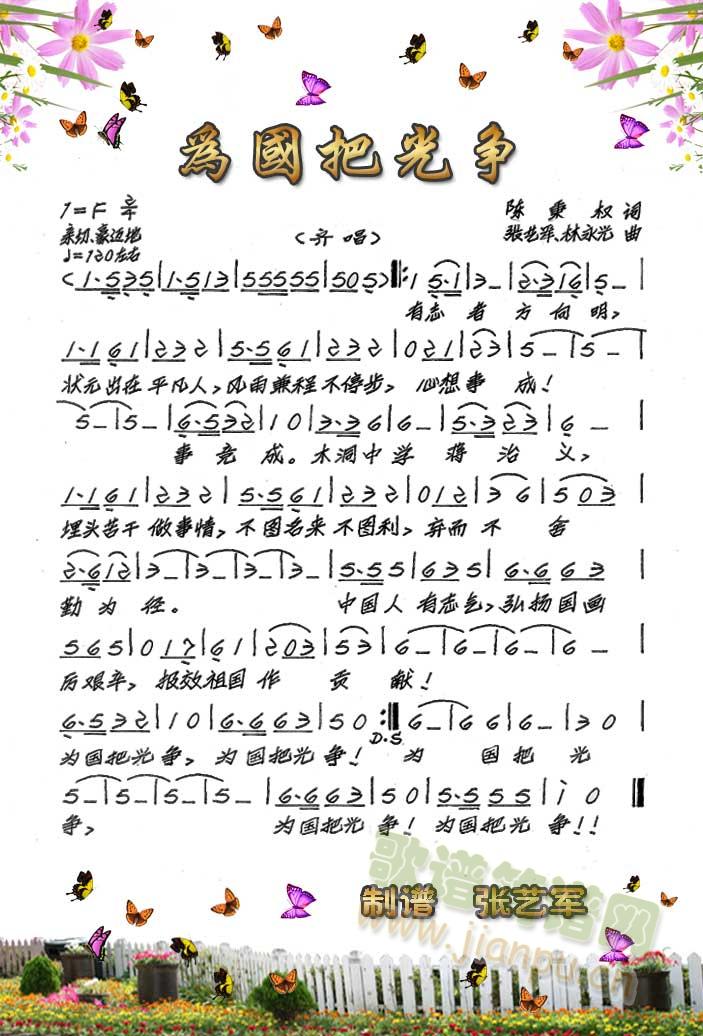 為國把光争
1=F 2/4
亲切、豪迈地
♩=120左右
(齐唱)
陈秉权 词
张艺军、林永光 曲
(1·535|1·513|55555|505)‖:1 5·1|3—|2·316|5—|
有志者方向明，
1·161|232|5·561|232|021|232|5—|5—|
状元出在平凡人，风雨兼程不停步，心想事成！
5—|5—|6·532|10|3·36|6—|5·323|6—|
事竞成。木洞中学蒋治义，
1·161|232|5·561|232|012|36|503|
埋头苦干做事情，不图名来不图利，弃而不舍
2·612|3—|3—|3—|3—|5·55|635|6·663|
勤为径。中国人有志气，弘扬国画
565|017|61|203|53|6—|6—|6—|6—|
历艰辛，报效祖国作贡献！
6·532|10|6·663|50:‖6—|66|6—|30|
D.S
为国把光争，为国把光争！为国把光
5—|5—|5—|5—|6·663|50|5·555|i0‖
争，为国把光争！为国把光争！！
制谱 张艺军
歌谱简谱网
www.jianpu.cn